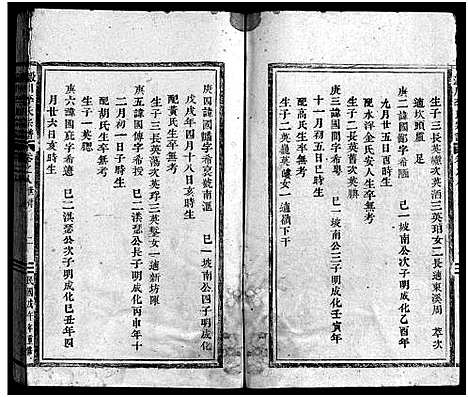 生子三長英緻次英酒三英珇女二長適東溪周萃次
適坎頭盧足
庚二諱鄙字希隱 巳一坡南公次子明成化乙酉年
九月廿五日酉時生
配水洋金氏安人生卒無考
生子二長英舊次英㦤
庚三諱國間字希粤 巳一坡南公三子明成化壬寅年
十一月初五日亥時生
配高氏生卒無考
生子三英 女一適嶺下干
庚四諱國 字希哀號南滙 巳一坡南公四子明成化
戊戌年四月十八日亥時生
配黃氏生卒無考
生子三長英蕩次英琈三英 女一適新坊陳
庚五諱國傅字希授 巳二淇瑟公長子明成化丙申年十
二月初一日子時生
配胡氏生卒無考
生子一英聰
庚六諱國直字希適 巳二淇瑟公次子明成化己丑年四
月廿六日亥時生
民國戊午年重修